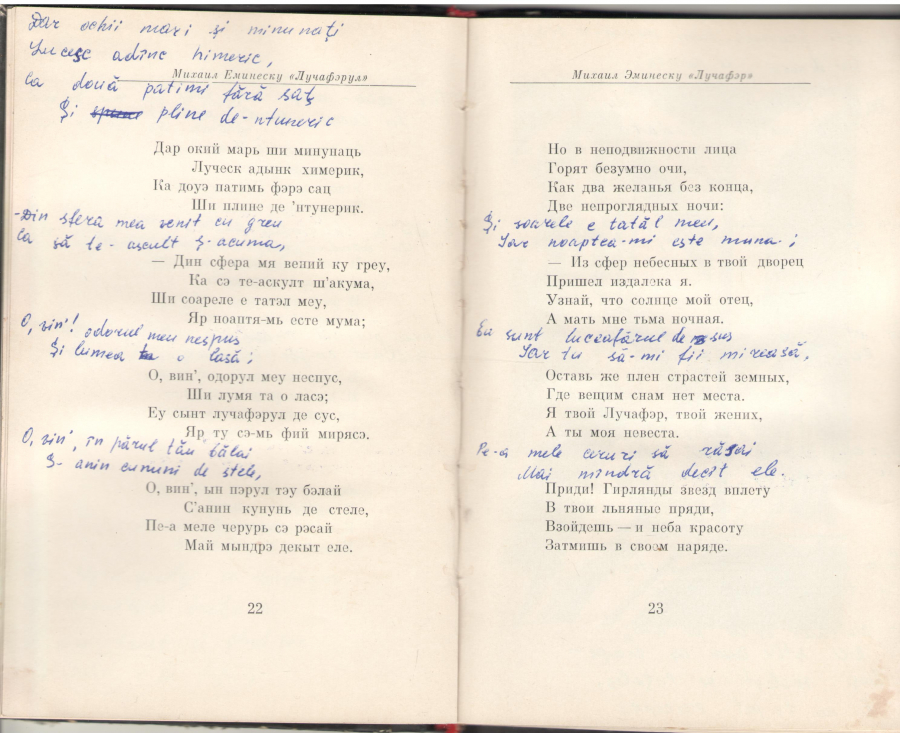 Dar ochii mari și minunați
Lucesc adînc himeric,
Михаил Еминеску «Лучафэрул»
Ca două patimi fără saț
Și spune pline de-ntuneric
Дар окий марь ши минунаць
Луческ адынк химерик,
Ка доуэ патимь фэрэ сац
Ши плине де 'нтунерик.
-Din sfera mea venit cu greu
Ca să te-ascult ș-acuma,
— Дин сфера мя вений ку греу,
Ка сэ те-аскулт ш'акума,
Ши соареле е татэл меу,
Яр ноаптя-мь есте мума;
O, vin'! odorul meu nespus
Și lumea ta o lasă;
О, вин', одорул меу неспус,
Ши лумя та о ласэ;
Еу сынт лучафэрул де сус,
Яр ту сэ-мь фий мирясэ.
O, vin', în părul tău bălai
Ș-anin cununi de stele,
О, вин', ын пэрул тэу бэлай
С'анин кунунь де стеле,
Пе-а меле черурь сэ рэсай
Май мындрэ декыт еле.
22
Михаил Эминеску «Лучафэр»
Но в неподвижности лица
Горят безумно очи,
Как два желанья без конца,
Две непроглядных ночи:
Și soarele e tatăl meu,
Iar noaptea-mi este muma;
— Из сфер небесных в твой дворец
Пришел издалека я.
Узнай, что солнце мой отец,
А мать мне тьма ночная.
Eu sunt luceafărul de sus
Iar tu să-mi fii mireasă,
Оставь же плен страстей земных,
Где вещим снам нет места.
Я твой Лучафэр, твой жених,
А ты моя невеста.
Pe-a mele ceruri să răsai
Mai mîndră decît ele.
Приди! Гирлянды звезд вплету
В твои льняные пряди,
Взойдешь — и неба красоту
Затмишь в своем наряде.
23